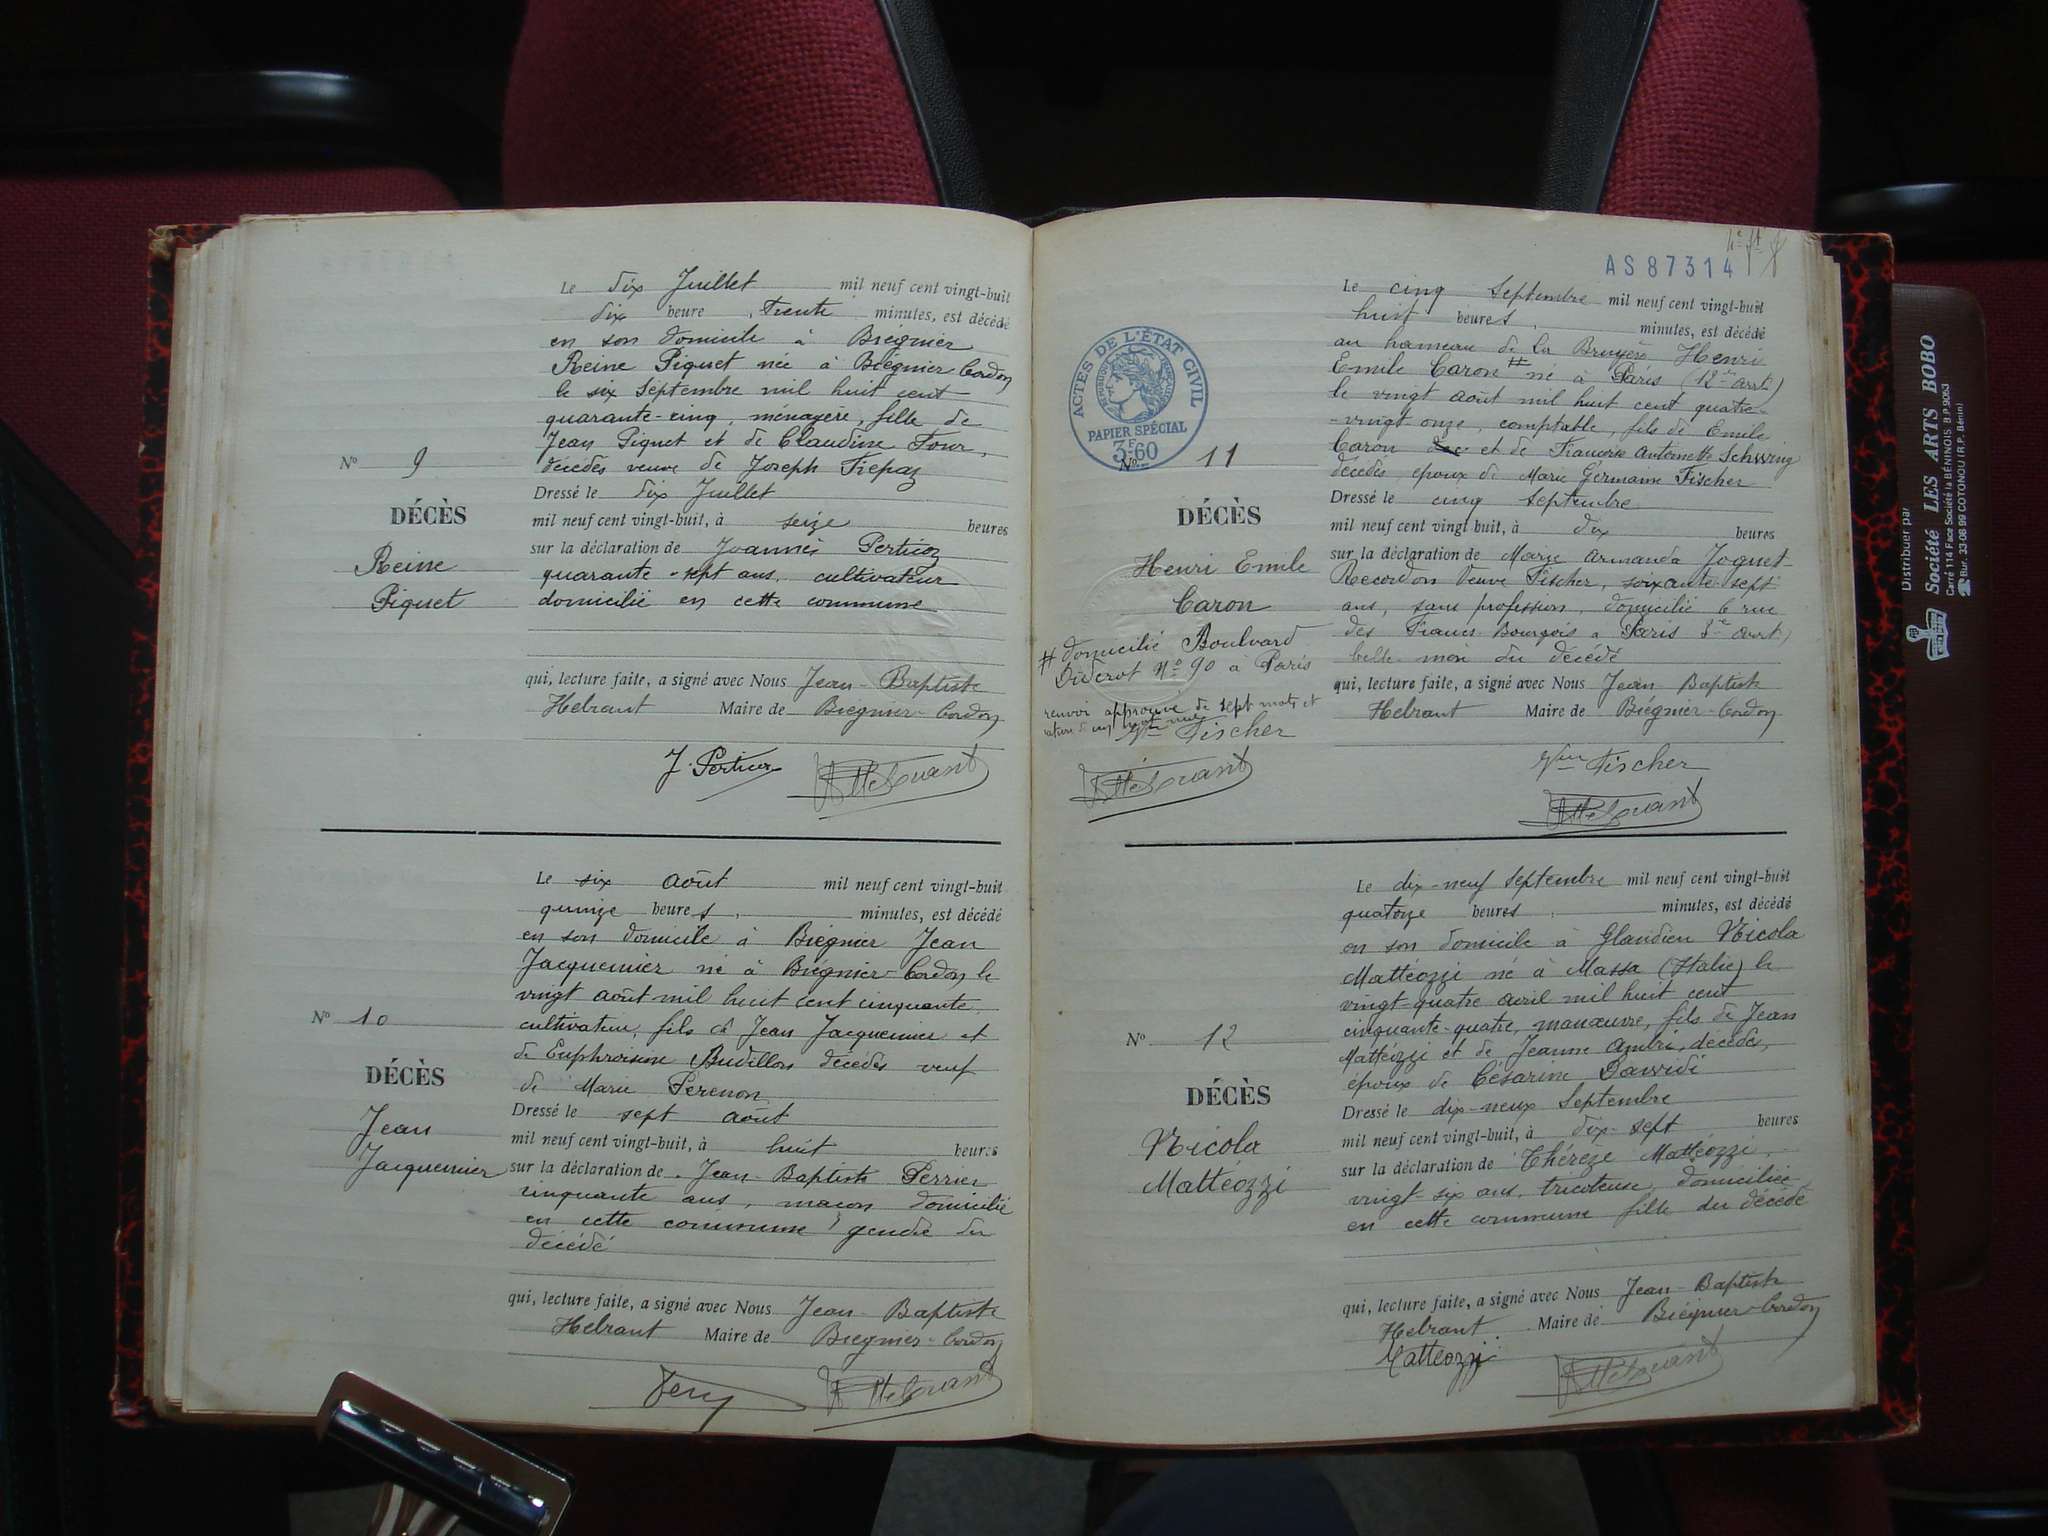 Le dix Juillet mil neuf cent vingt-huit
dix heure trente minutes, est décédé
en son domicile à Brégnier
Reine Piguet née à Brégnier-Cordon
le six Septembre mil huit cent
quarante-cinq, ménagère, fille de
Jean Piguet et de Claudine Four,
décédés veuve de Joseph Trepaz
Dressé le dix Juillet
mil neuf cent vingt-huit, à seize heures
sur la déclaration de Joannès Perticoz
quarante-sept ans, cultivateur
domicilié en cette commune
qui, lecture faite, a signé avec Nous Jean-Baptiste
Hebrant Maire de Brégnier-Cordon
Nº 9
DÉCÈS
Reine
Piguet
J. Perticoz
Le six août mil neuf cent vingt-huit
quinze heures, minutes, est décédé
en son domicile à Brégnier Jean
Jacquemier né à Brégnier-Cordon le
vingt août mil huit cent cinquante
cultivateur, fils de Jean Jacquemier et
de Euphroisine Budillon décédés veuf
de Marie Perenon
Dressé le sept août
mil neuf cent vingt-huit, à huit heures
sur la déclaration de Jean-Baptiste Perrier
cinquante ans, maçon domicilié
en cette commune, gendre du
décédé
qui, lecture faite, a signé avec Nous Jean-Baptiste
Hebrant Maire de Brégnier-Cordon
Nº 10
DÉCÈS
Jean
Jacquemier
AS87314
Le cinq Septembre mil neuf cent vingt-huit
huit heures, minutes, est décédé
au hameau de la Bruyère Henri
Emile Caron # né à Paris (12me arrt)
le vingt août mil huit cent quatre-
-vingt-onze, comptable, fils de Emile
Caron et de Francoise Antoinette Schwing
décédés, époux de Marie Germaine Fischer
Dressé le cinq Septembre
mil neuf cent vingt-huit, à dix heures
sur la déclaration de Marie Armanda Joguet
Recordon Veuve Fischer, soixante-sept
ans, sans profession, domicilié 6 rue
des Francs-Bourgois à Paris 3me arrt)
belle-mère du décédé
qui, lecture faite, a signé avec Nous Jean-Baptiste
Hebrant Maire de Brégnier-Cordon
Vve Fischer
ACTES DE L'ÉTAT CIVIL
PAPIER SPÉCIAL
3F60
Nº 11
DÉCÈS
Henri Emile
Caron
# domicilié Boulvard
Diderot Nº 90 à Paris
renvoi approuvé de sept mots et
Vve Fischer
Le dix-neuf Septembre mil neuf cent vingt-huit
quatorze heures, minutes, est décédé
en son domicile à Glandieu Nicola
Mattéozzi né à Massa (Italie) le
vingt-quatre avril mil huit cent
cinquante-quatre, manœuvre, fils de Jean
Mattéozzi et de Jeanne Ambri, décédés,
époux de Césarine Davvidi
Dressé le dix-neux Septembre
mil neuf cent vingt-huit, à dix-sept heures
sur la déclaration de Thérèze Mattéozzi,
vingt-six ans, tricoteuse, domiciliée
en cette commune fille du décédé
qui, lecture faite, a signé avec Nous Jean-Baptiste
Hebrant Maire de Brégnier-Cordon
Mattéozzi
Nº 12
DÉCÈS
Nicola
Mattéozzi
Distribuer par
Société LES ARTS BOBO
Carré 114 Face Société la BÉNINOIS B.P. 9063
Bur. 33 06 99 COTONOU (R.P. Bénin)